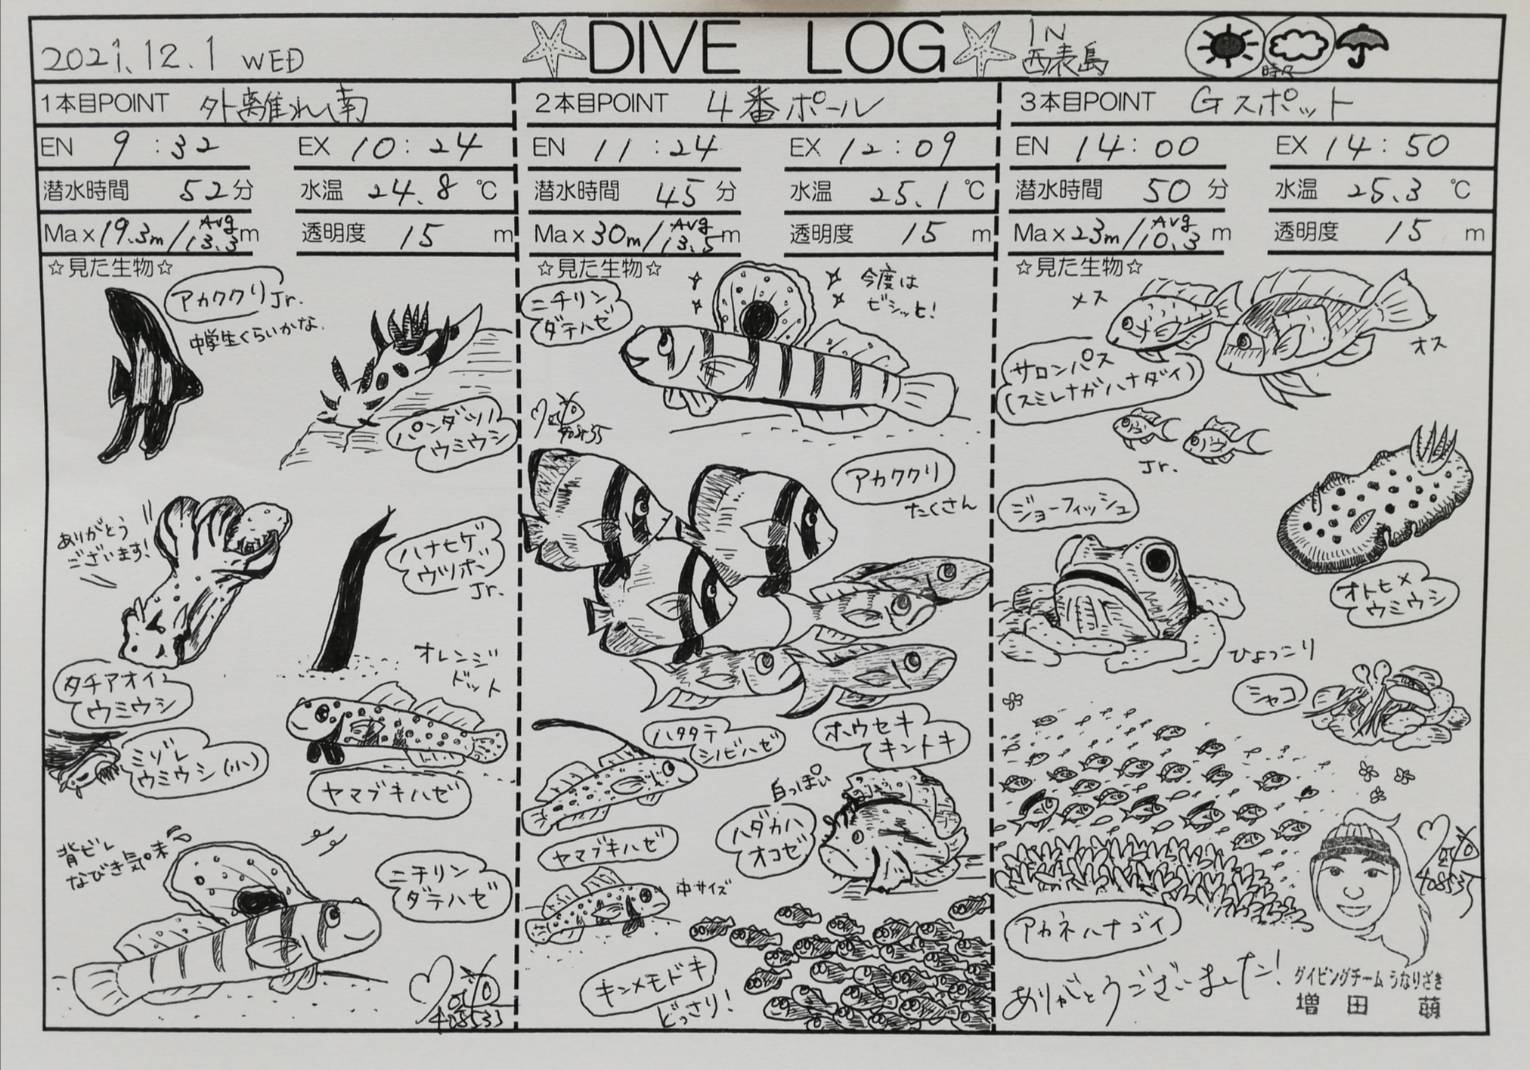 2021.12.1 WED
DIVE LOG
IN
西表島
時々
1本目POINT 外離れ南
EN 9:32 EX 10:24
潜水時間 52分 水温 24.8℃
Max 19.3m/Avg 13.3m 透明度 15m
☆見た生物☆
アカククリJr.
中学生くらいかな.
パンダツノ
ウミウシ
ありがとう
ございます!
ハナヒゲ
ウツボ
Jr.
タチアオイ
ウミウシ
オレンジ
ドット
ミゾレ
ウミウシ(小)
ヤマブキハゼ
背ビレ
なびき気味
ニチリン
ダテハゼ
2本目POINT 4番ポール
EN 11:24 EX 12:09
潜水時間 45分 水温 25.1℃
Max 30m/Avg 13.5m 透明度 15m
☆見た生物☆
ニチリン
ダテハゼ
今度は
ビシッと!
アカククリ
たくさん
ハタタテ
シノビハゼ
ホウセキ
キントキ
白っぽい
ハダカハ
オコゼ
ヤマブキハゼ
中サイズ
キンメモドキ
どっさり!
3本目POINT Gスポット
EN 14:00 EX 14:50
潜水時間 50分 水温 25.3℃
Max 23m/Avg 10.3m 透明度 15m
☆見た生物☆
メス
オス
サロンパス
(スミレナガハナダイ)
Jr.
ジョーフィッシュ
オトヒメ
ウミウシ
ひょっこり
シャコ
アカネハナゴイ
ありがとうございました!
ダイビングチームうなりざき
増田 萌